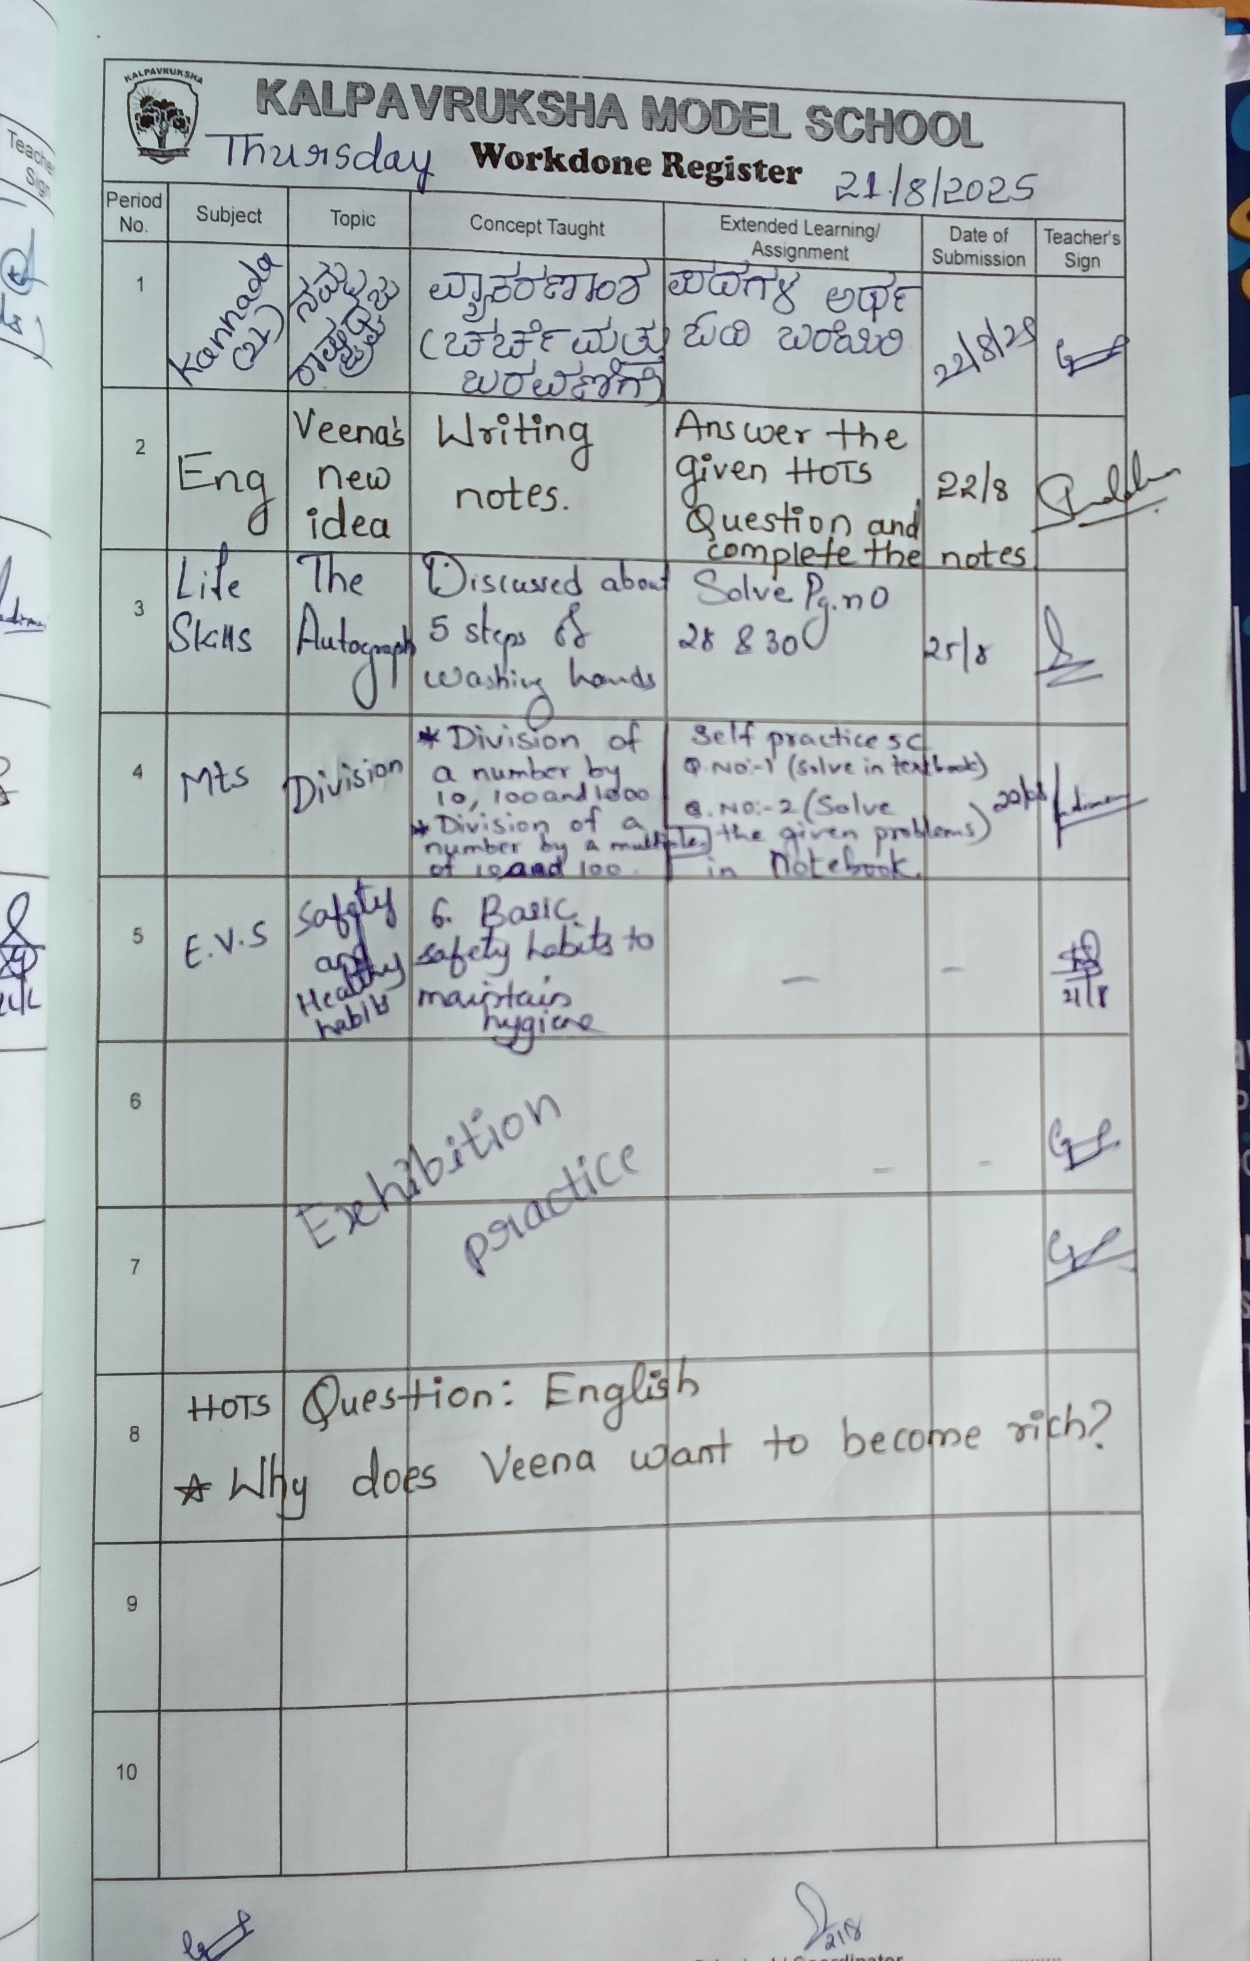 KALPAVRUKSHA
KALPAVRUKSHA MODEL SCHOOL
Thursday Workdone Register 21/8/2025
Period No. Subject Topic Concept Taught Extended Learning/ Assignment Date of Submission Teacher's Sign
1
Kannada
(2L)
ನಮ್ಮ
ರಾಷ್ಟ್ರಧ್ವಜ
ವ್ಯಾಕರಣಾಂಶ
(ಚರ್ಚೆ ಮತ್ತು
ಬರವಣಿಗೆ)
ಪದಗಳ ಅರ್ಥ
ಓದಿ ಬರೆಯಿರಿ
22/8/25
2
Eng
Veena's
new
idea
Writing
notes.
Answer the
given HOTS
Question and
complete the notes
22/8
3
Life
Skills
The
Autograph
Discussed about
5 steps of
washing hands
Solve Pg.no
28 & 30
25/8
4
Mts
Division
* Division of
a number by
10, 100 and 1000
* Division of a
number by a multiples
of 10 and 100.
Self practice 5C
Q.No:-1 (Solve in textbook)
Q.No:-2 (Solve
the given problems)
in Notebook.
5
E.V.S
Safety
and
Healthy
habits
6. Basic
safety habits to
maintain
hygiene
-
-
21/8
6
Exhibition
practice
-
-
7
8
HOTS Question: English
* Why does Veena want to become rich?
9
10
21/8
Teacher
Sign